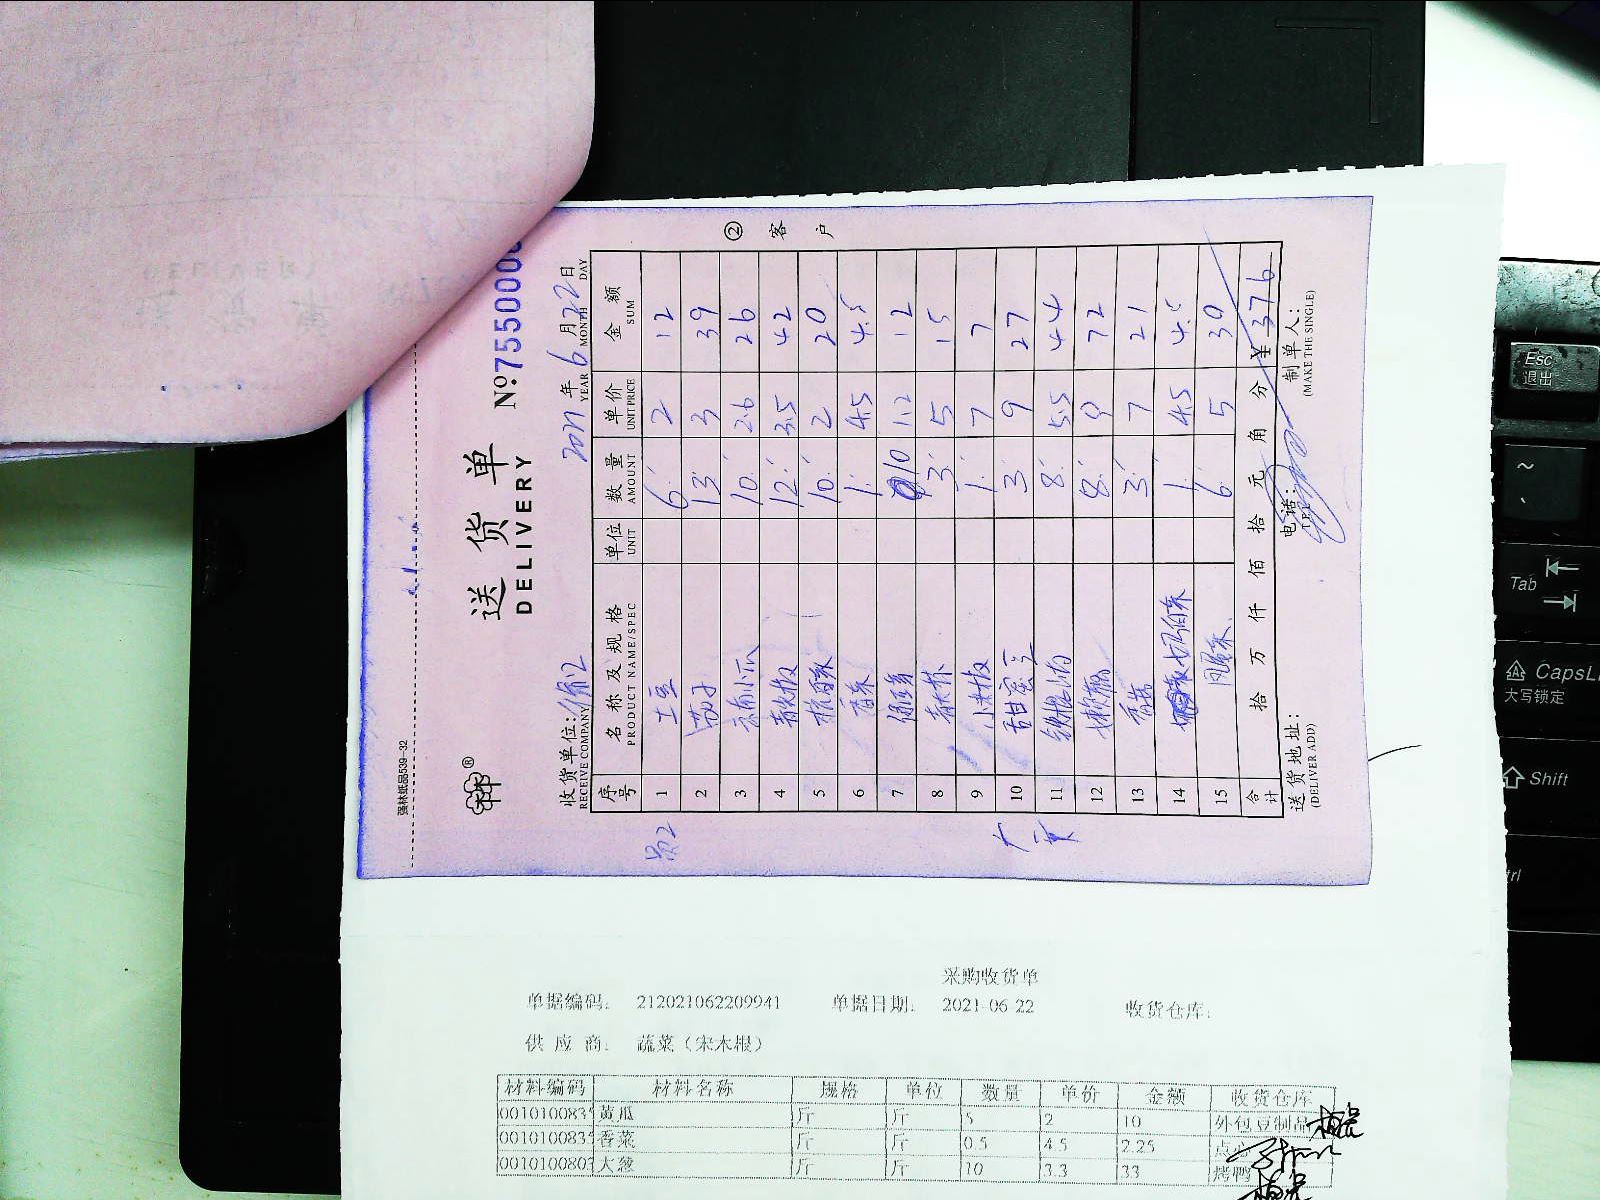 强林纸品539-32
送货单
DELIVERY
№7550000
② 客户
收货单位:
RECEIVE COMPANY
2021年 6月 22日
YEAR MONTH DAY
序号 名称及规格 单位 数量 单价 金额
PRODUCT NAME/SPEC UNIT AMOUNT UNIT PRICE SUM
1 土豆 6 2 12
2 茄子 13 3 39
3 10 2.6 26
4 青尖椒 12 3.5 42
5 10 2 20
6 香菜 1 4.5 4.5
7 10 1.2 12
8 3 5 15
9 小米椒 1 7 7
10 甜蜜豆 3 9 27
11 8 5.5 44
12 8 9 72
13 3 7 21
14 奶白菜 1 4.5 4.5
15 6 5 30
合计 拾 万 仟 佰 拾 元 角 分 ¥376
送货地址:
(DELIVER ADD)
电话:
TEL
制单人:
(MAKE THE SINGLE)
采购收货单
单据编码: 212021062209941 单据日期: 2021-06-22 收货仓库:
供应商: 蔬菜（宋木根）
材料编码 材料名称 规格 单位 数量 单价 金额 收货仓库
0010100835 黄瓜 斤 斤 5 2 10 外包豆制品
0010100835 香菜 斤 斤 0.5 4.5 2.25 点心
0010100803 大葱 斤 斤 10 3.3 33 烤鸭
Esc
退出
~
Tab
CapsL
大写锁定
Shift
trl